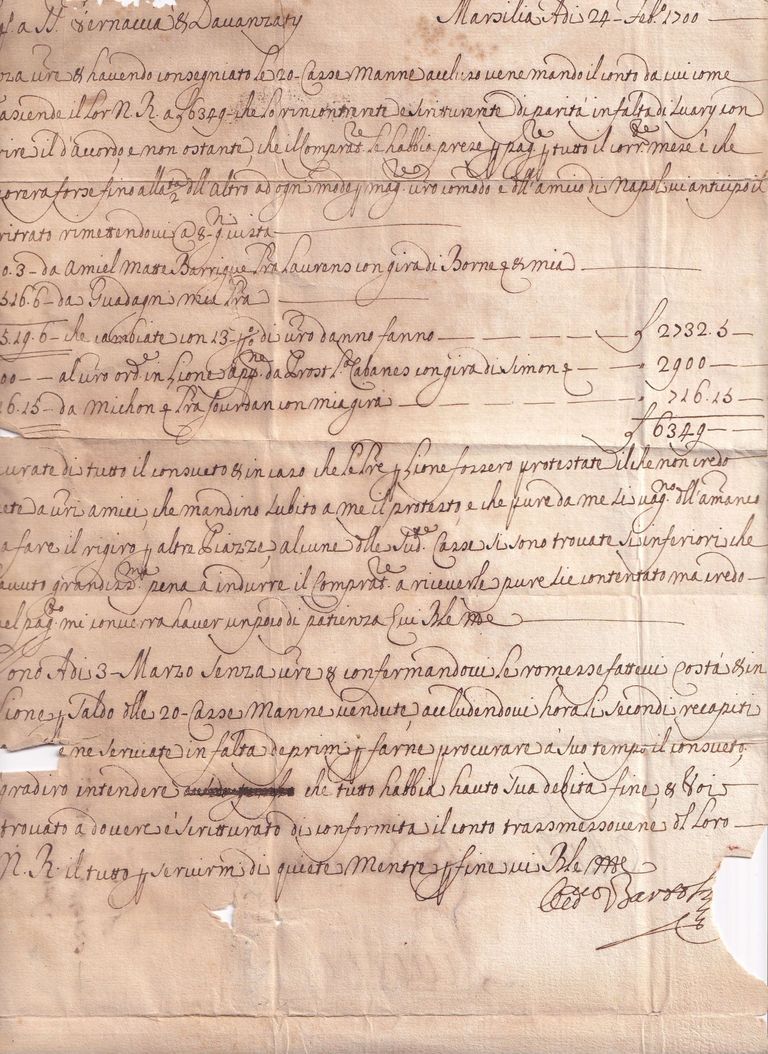 a SS. Vernaccia & Davanzaty Marsilia Adi 24 Feb.o 1700
vre & havendo consegniato le 20 Casse Manne accluso vene mando il conto da cui come
asiende il lor N. R. a £ 6349 che lo rincontrerete e scritturerete di parità in falta di Svary con
rire il d'accordo, e non ostante, che il Comprat.re le habbia prese p pag.re p tutto il corr.te mese è che
forse fino alla 1/2 dll altro ad ogni modo p mag. vro comodo e dll'amico di Napoli vi anticipo il
ritrato rimettendovi a 8 ni quista
0.3 da Amiel Matte Barrigue Pra Laurens con gira di Borne & mia
516.6 da Guadagn mia Pra
5.19.6 che cambiate con 13 p % di vro danno fanno £ 2732.5
00 al vro ord.e in Lione da Prost Cabanes con gira di Simon 2900
16.15 da Michon Pra Jourdan con mia gira 716.15
£ 6349
curate di tutto il consueto & in caso che le Pre p Lione fossero protestate il che non credo
ete a vri amici, che mandino subito a me il protesto, e che pure da me li vag.no dll'amanco
a fare il rigiro p altre Piazze, alcune dlle Sud.e Casse si sono trovate si inferiori che
havuto grandiss.ma pena a indurre il Comprat.re a riceverle pure sie contentato ma credo
nel pag.to mi converra haver un poco di patienza
Adi 3 Marzo Senza vre & confermandovi le romesse fattevi Costà & in
Lione p Saldo dlle 20 Casse Manne vendute, accludendovi hora li secondi recapiti
ne serviate in falta de primi p farne procurare a suo tempo il consueto,
gradiro intendere che tutto habbia hauto sua debita fine, & Voi
trovato a dovere è scritturato di conformita il conto trassmessovene, dl Loro
N. R. il tutto p servirmi di quiete Mentre p fine vi